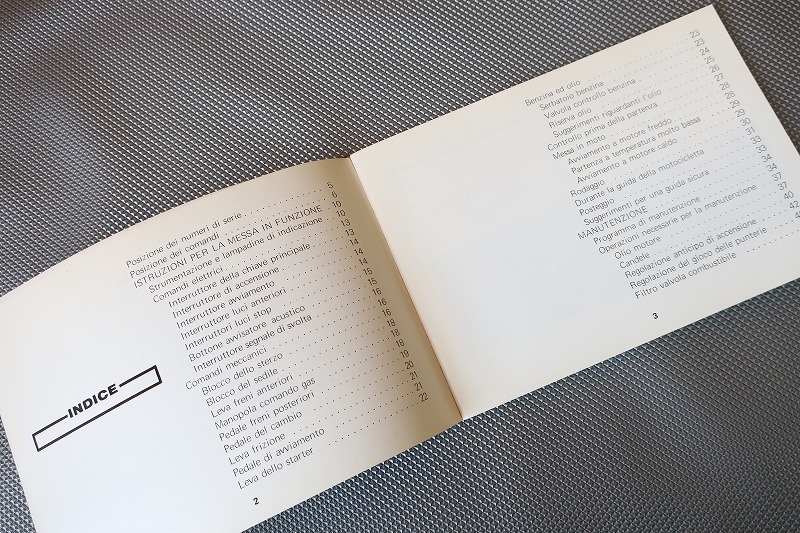 INDICE
Posizione dei numeri di serie 5
Posizione dei comandi 6
ISTRUZIONI PER LA MESSA IN FUNZIONE 10
Strumentazione e lampadine di indicazione 10
Comandi elettrici 13
Interruttore della chiave principale 13
Interruttore di accensione 14
Interruttore avviamento 14
Interruttore luci anteriori 14
Interruttori luci stop 15
Bottone avvisatore acustico 15
Interruttore segnale di svolta 16
Comandi meccanici 16
Blocco dello sterzo 16
Blocco del sedile 18
Leva freni anteriori 18
Manopola comando gas 18
Pedale freni posteriori 19
Pedale del cambio 20
Leva frizione 21
Pedale di avviamento 21
Leva dello starter 22
2
Benzina ed olio 23
Serbatoio benzina 23
Valvola controllo benzina 24
Riserva olio 25
Suggerimenti riguardanti l'olio 26
Controllo prima della partenza 27
Messa in moto 28
Avviamento a motore freddo 28
Partenza a temperatura molto bassa 29
Avviamento a motore caldo 29
Rodaggio 30
Durante la guida della motocicletta 31
Posteggio 33
Suggerimenti per una guida sicura 33
MANUTENZIONE 34
Programma di manutenzione 34
Operazioni necessarie per la manutenzione 37
Olio motore 37
Candele 40
Regolazione anticipo di accensione 42
Regolazione del gioco delle punterie
Filtro valvola combustibile
3